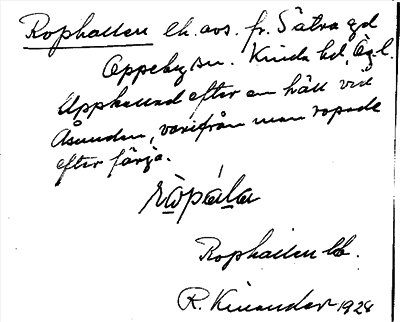 Rophallen lh. avs. fr. Sätra gd
Oppeby sn. Kinda hd, Ög.l.
Uppkallad efter en häll vid
Åsunden, varifrån man ropade
efter färja.
ròpála
Rophallen
R. Kinander 1928